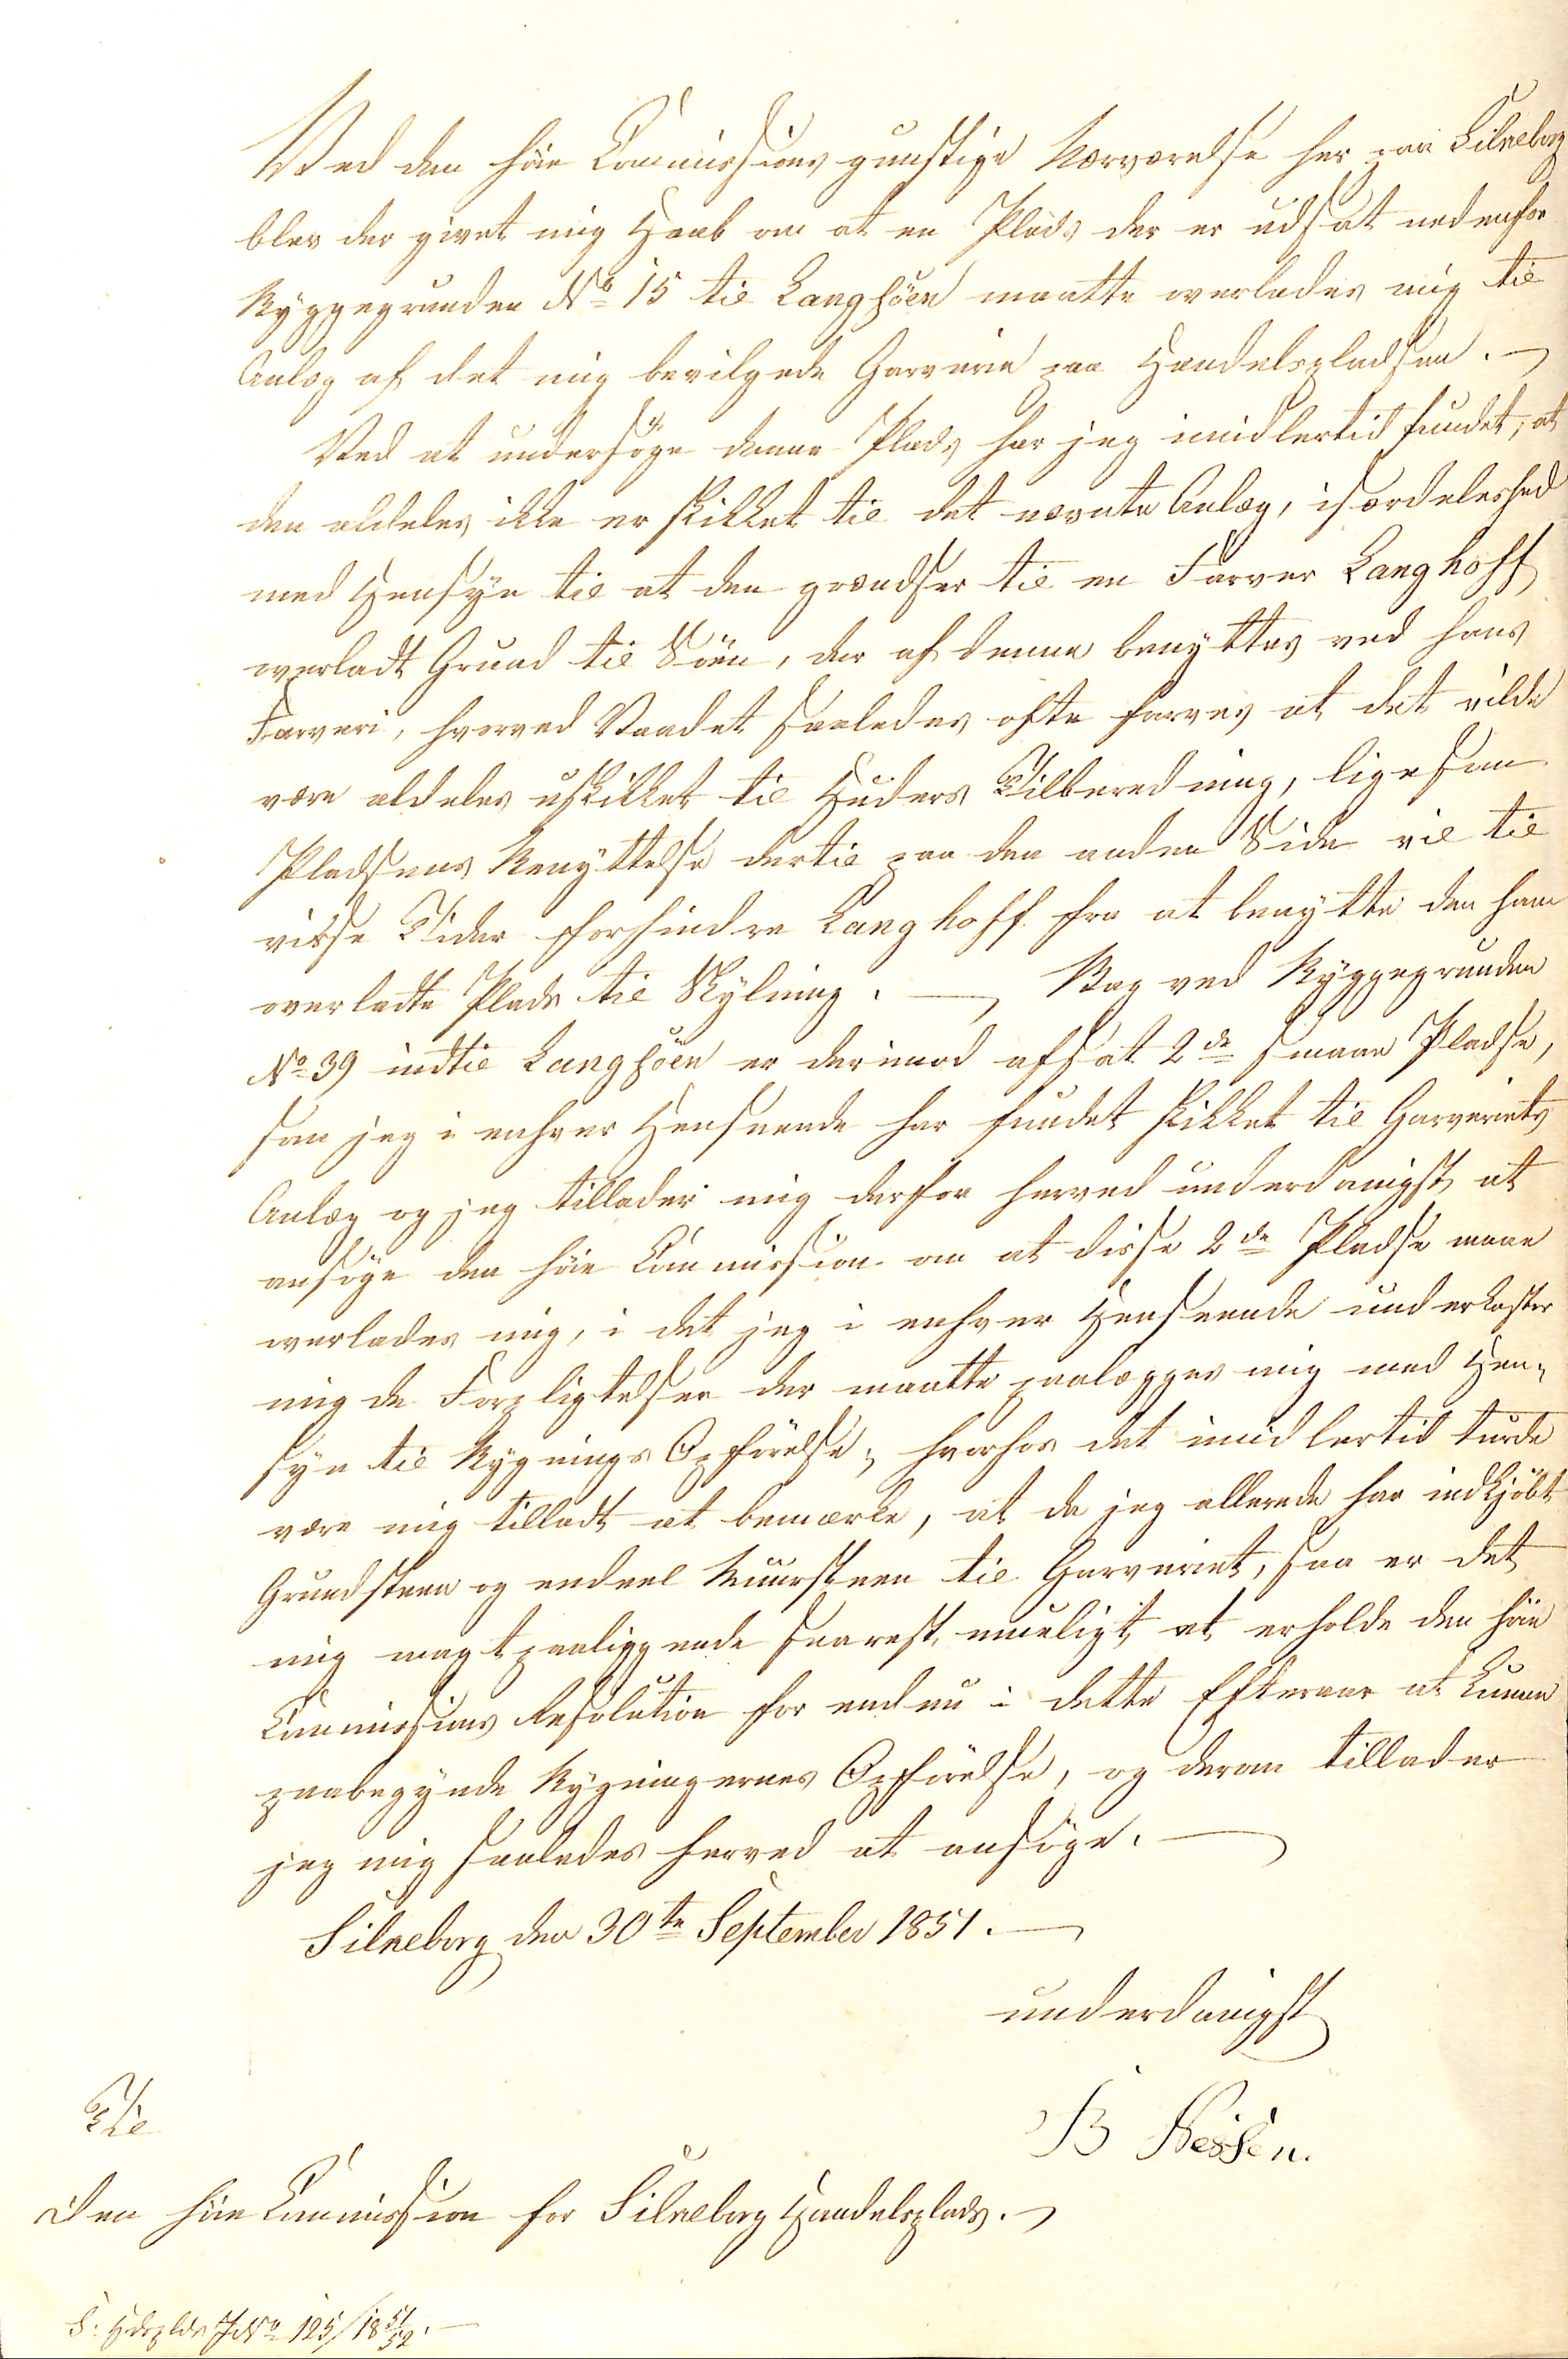 Ved den høie Commissions gunstige Nærværelse her paa Silkeborg
blev der givet mig Haab om at en Plads der er udsat nedenfor
Byggegrunden No 15 til Langsöen maatte overlades mig til
Anlæg af det mig bevilgede Garverie paa Handelspladsen. —
Ved at undersöge denne Plads har jeg imidlertid fundet, at
den aldeles ikke er skikket til det nævnte Anlæg, isærdeleshed
med Hensyn til at den grændser til en Farver Langhoff
overladt Grund til Söen, der af denne benyttes ved hans
Farveri, hvorved Vandet saaledes ofte farves at det vilde
være aldeles uskikket til Huders Tilberedning, ligesom
Pladsens Benyttelse dertil paa den anden Side vil til
visse Tider forhindre Langhoff fra at benytte den ham
overladte Plads til Skylning. — Bag ved Byggegrunden
No 39 indtil Langsöen er derimod afsat 2de smaae Pladse,
som jeg i enhver Henseende har fundet skikket til Garveriets
Anlæg og jeg tillader mig derfor herved underdanigst at
ansöge den höie Commission om at disse 2de Pladse maae
overlades mig, i det jeg i enhver Henseende underkaster
mig de Forpligtelser der maatte paalægges mig med Hen-
syn til Bygnings Opförelse, hvorhos det imidlertid turde
være mig tilladt at bemærke, at da jeg allerede har indkjöbt
Grundsteen og endeel Muursteen til Garveriet, saa er det
mig magtpaaliggende snarest mueligt at erholde den höie
Commissions Resolution for endnu i dette Efteraar at kunne
paabegynde Bygningernes Opförelse, og derom tillader
jeg mig saaledes herved at ansöge. —
Silkeborg den 30te September 1851. —
underdanigst
B Nessen.
Til
den höie Commission for Silkeborg Handelsplads. —
S: Hdsplds J No 125/18 51/52. —